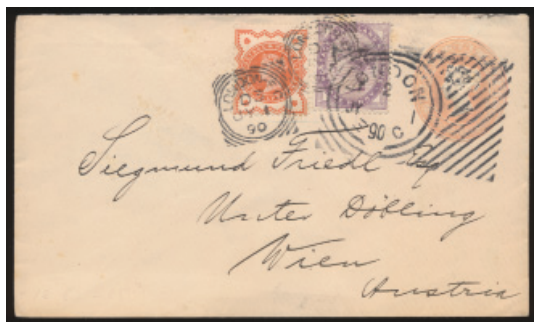 LONDON
90
90
Siegmund Friedl Esq
Unter Döbling
Wien
Austria